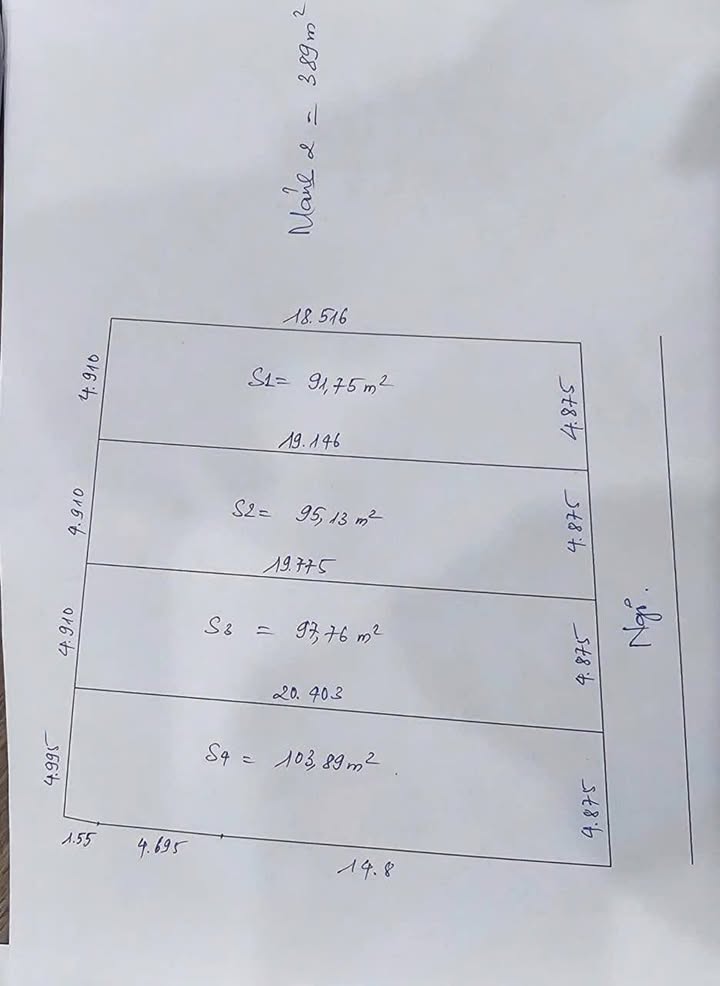 Mảnh 2 = 389m²
18.516
4.910
S1= 91,75m²
4.875
19.146
4.910
S2= 95,13m²
4.875
19.775
4.910
S3 = 97,76m²
4.875
Ngõ.
20.403
4.995
S4 = 103,89m²
4.875
1.55
4.695
14.8